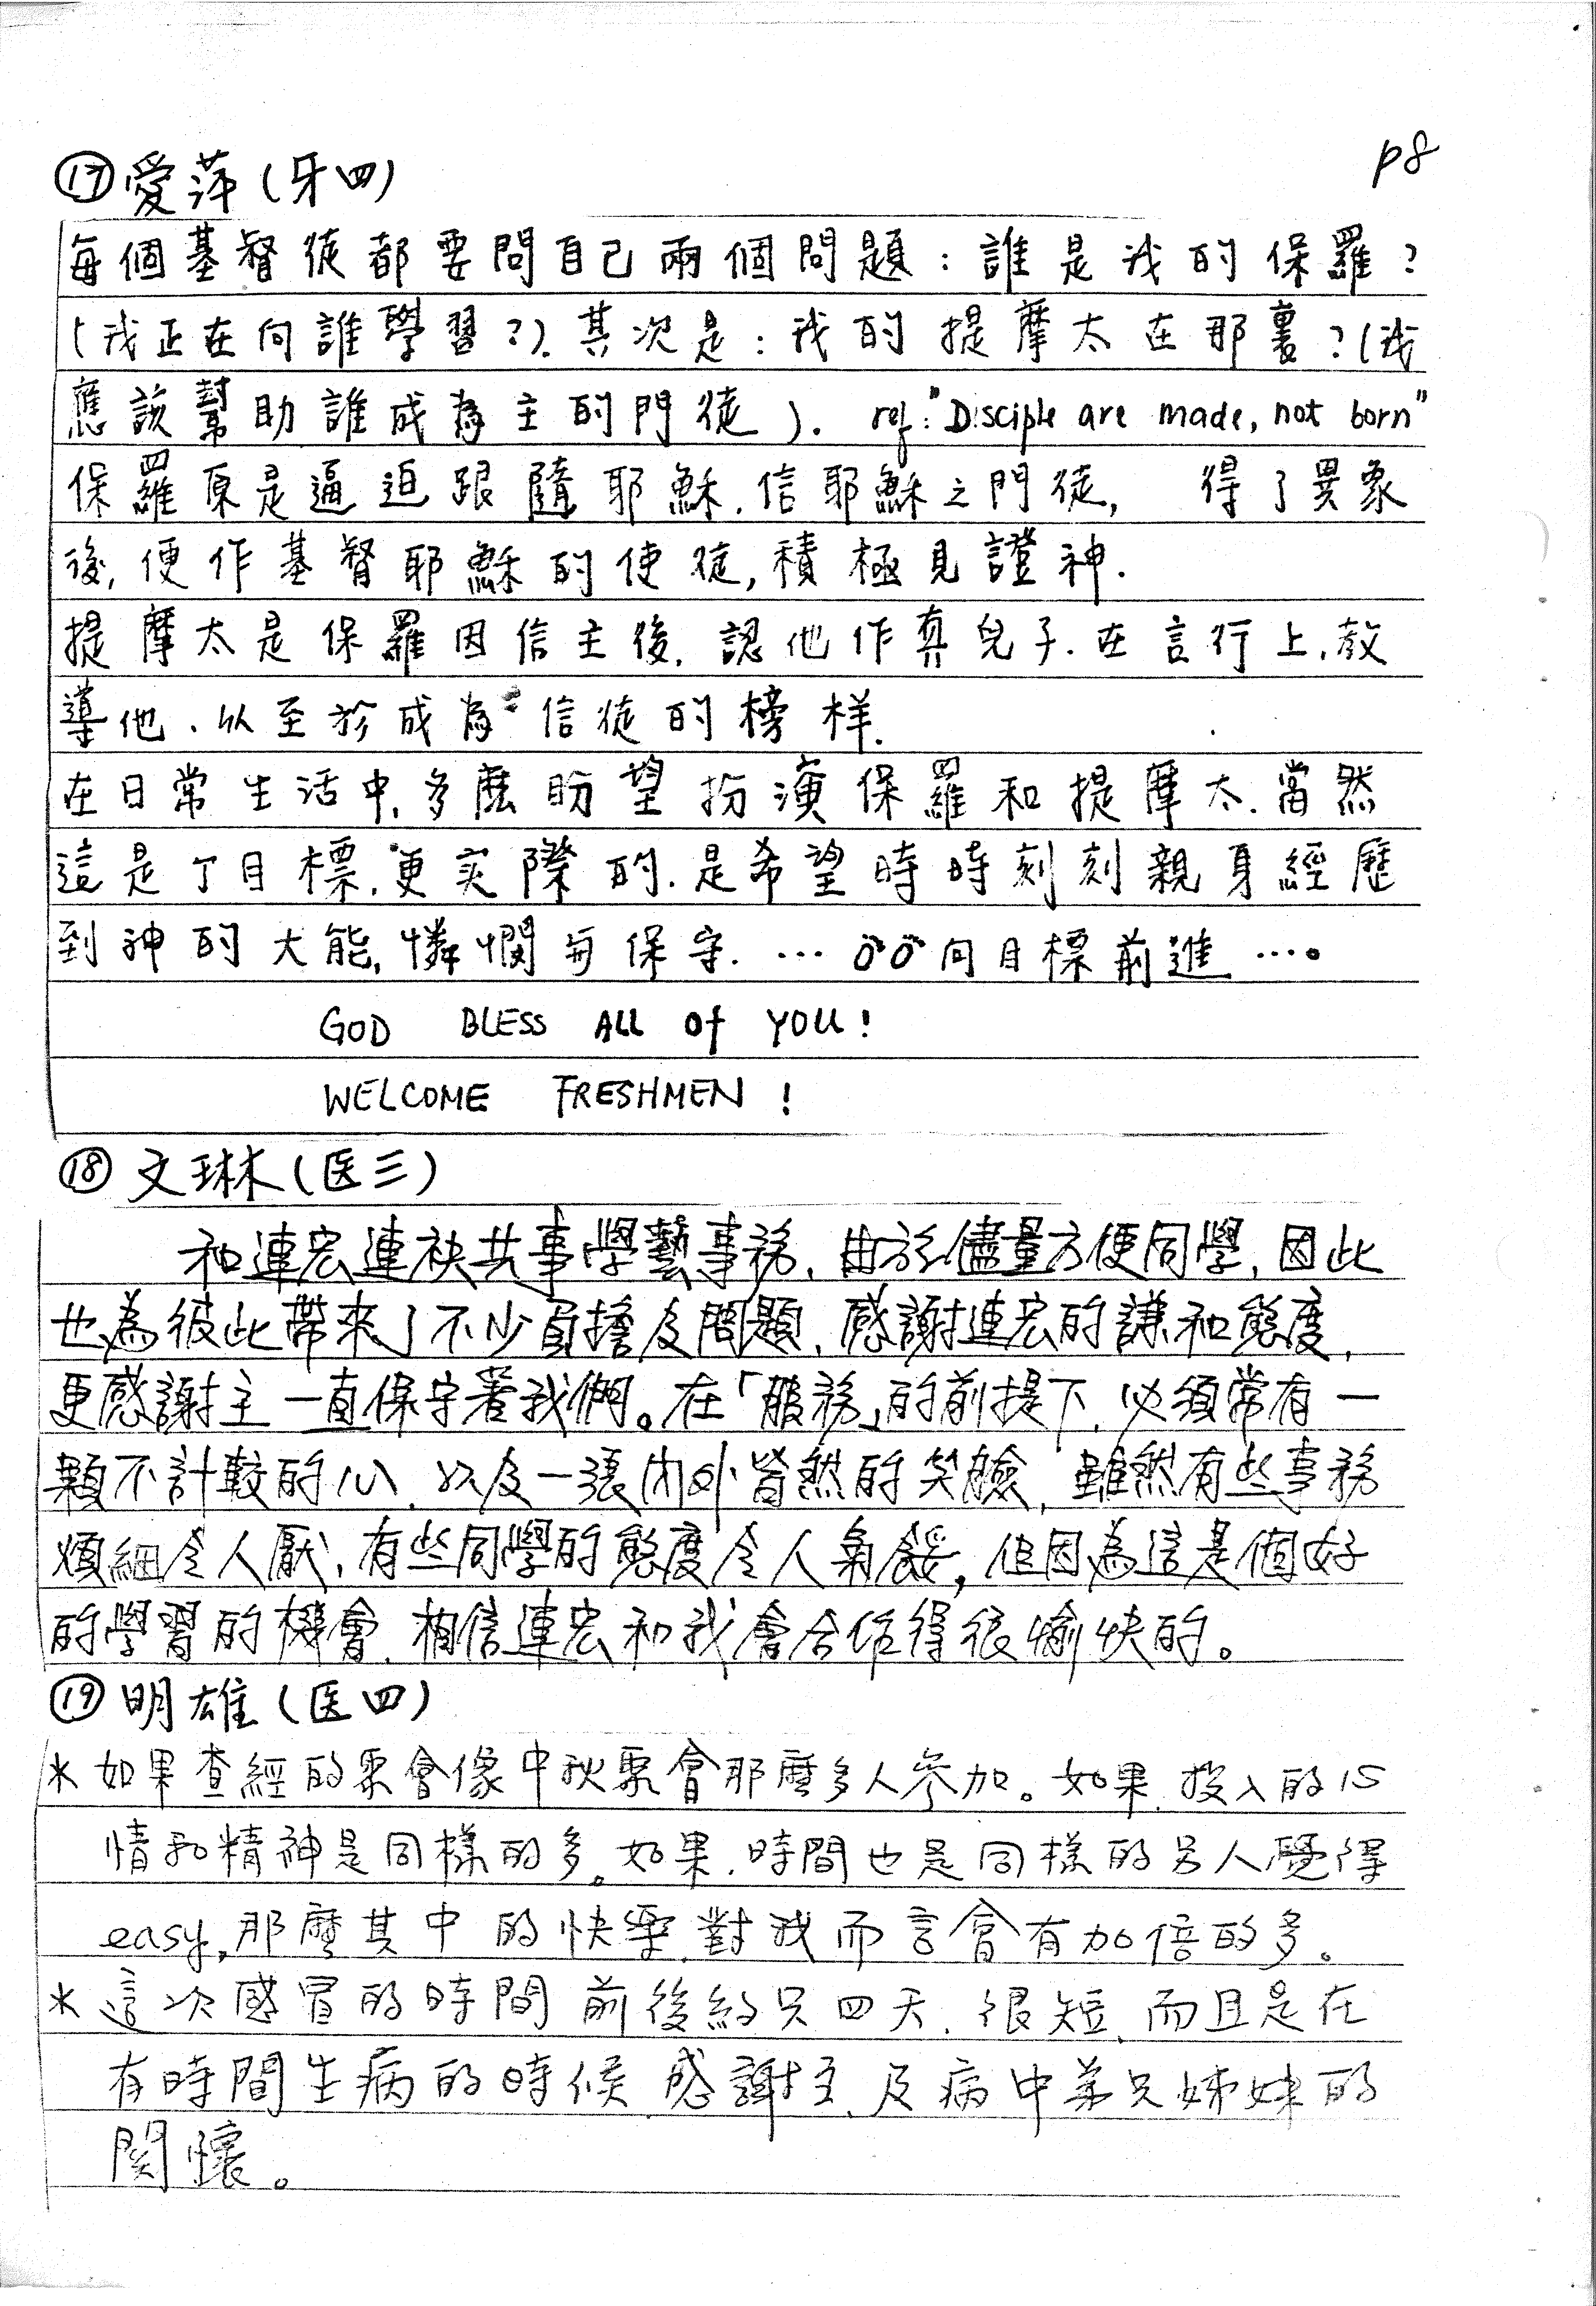 p8
⑰愛萍(牙四)
每個基督徒都要問自己兩個問題:誰是我的保羅?
(我正在向誰學習?).其次是:我的提摩太在那裏?(我
應該幫助誰成為主的門徒). ref:"Disciple are made, not born"
保羅原是逼迫跟隨耶穌.信耶穌之門徒, 得了異象
後,便作基督耶穌的使徒,積極見證神.
提摩太是保羅因信主後,認他作真兒子.在言行上,教
導他、以至於成為信徒的榜样.
在日常生活中,多麽盼望扮演保羅和提摩太.當然
這是丁目標,更实際的.是希望時時刻刻親身經歷
到神的大能,憐憫與保守. … 向目標前進 …。
GOD BLESS ALL of YOU!
WELCOME FRESHMEN!
⑱文琳(医三)
和連宏連袂共事學藝事務,由於儘量方便同學,因此
也為彼此帶來了不少負擔及問題,感謝連宏的謙和態度,
更感謝主一直保守著我們。在「服務」的前提下,必須常有一
顆不計較的心,以及一張內外皆然的笑臉,雖然有些事務
煩細令人厭,有些同學的態度令人氣餒,但因為這是個好
的學習的機會,相信連宏和我會合作得很愉快的。
⑲明雄(医四)
*如果查經的聚會像中秋聚會那麼多人參加。如果,投入的心
情和精神是同樣的多。如果,時間也是同樣的另人覺得
easy,那麼其中的快樂,對我而言會有加倍的多。
*這次感冒的時間前後約只四天,很短,而且是在
有時間生病的時候,感謝主,及病中弟兄姊妹的
関懷。